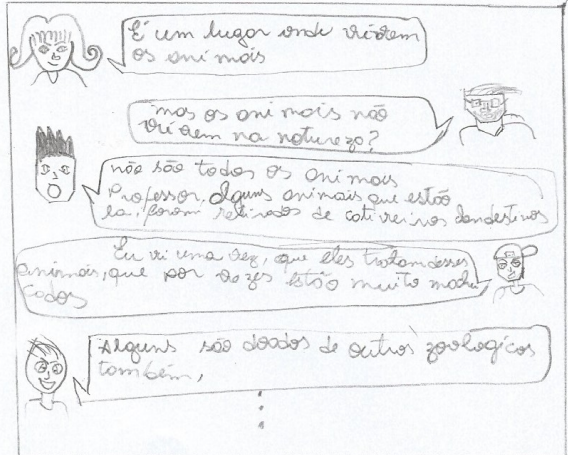 É um lugar onde vivem
os animais
mas os animais não
vivem na natureza?
não são todos os animais
Professor. Alguns animais que estão
la, foram retirados de cativeiros clandestinos
Eu vi uma vez, que eles tratam desses
animais, que por vezes estão muito machu
cados
Alguns são doados de outros zoologicos
também,